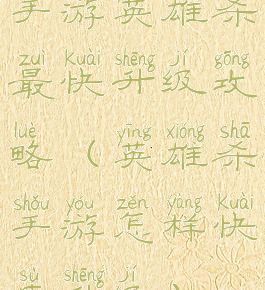 手游英雄杀
zuì kuài shēng jí gōng
最快升级攻
lüè yīng xióng shā
略(英雄杀
shǒu yóu zěn yàng kuài
手游怎样快
sù shēng jí